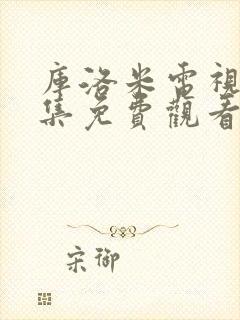 庫洛米電視
集免費觀看
宋御